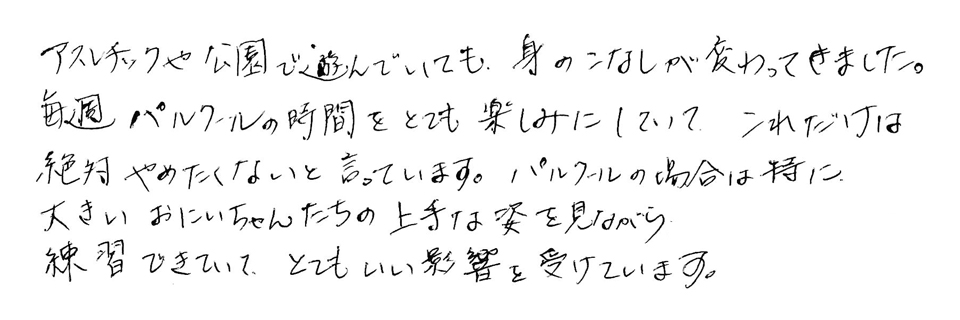 アスレチックや公園で遊んでいても、身のこなしが変わってきました。
毎週パルクールの時間をとても楽しみにしていて、これだけは
絶対やめたくないと言っています。パルクールの場合は特に、
大きいおにいちゃんたちの上手な姿を見ながら
練習できていて、とてもいい影響を受けています。